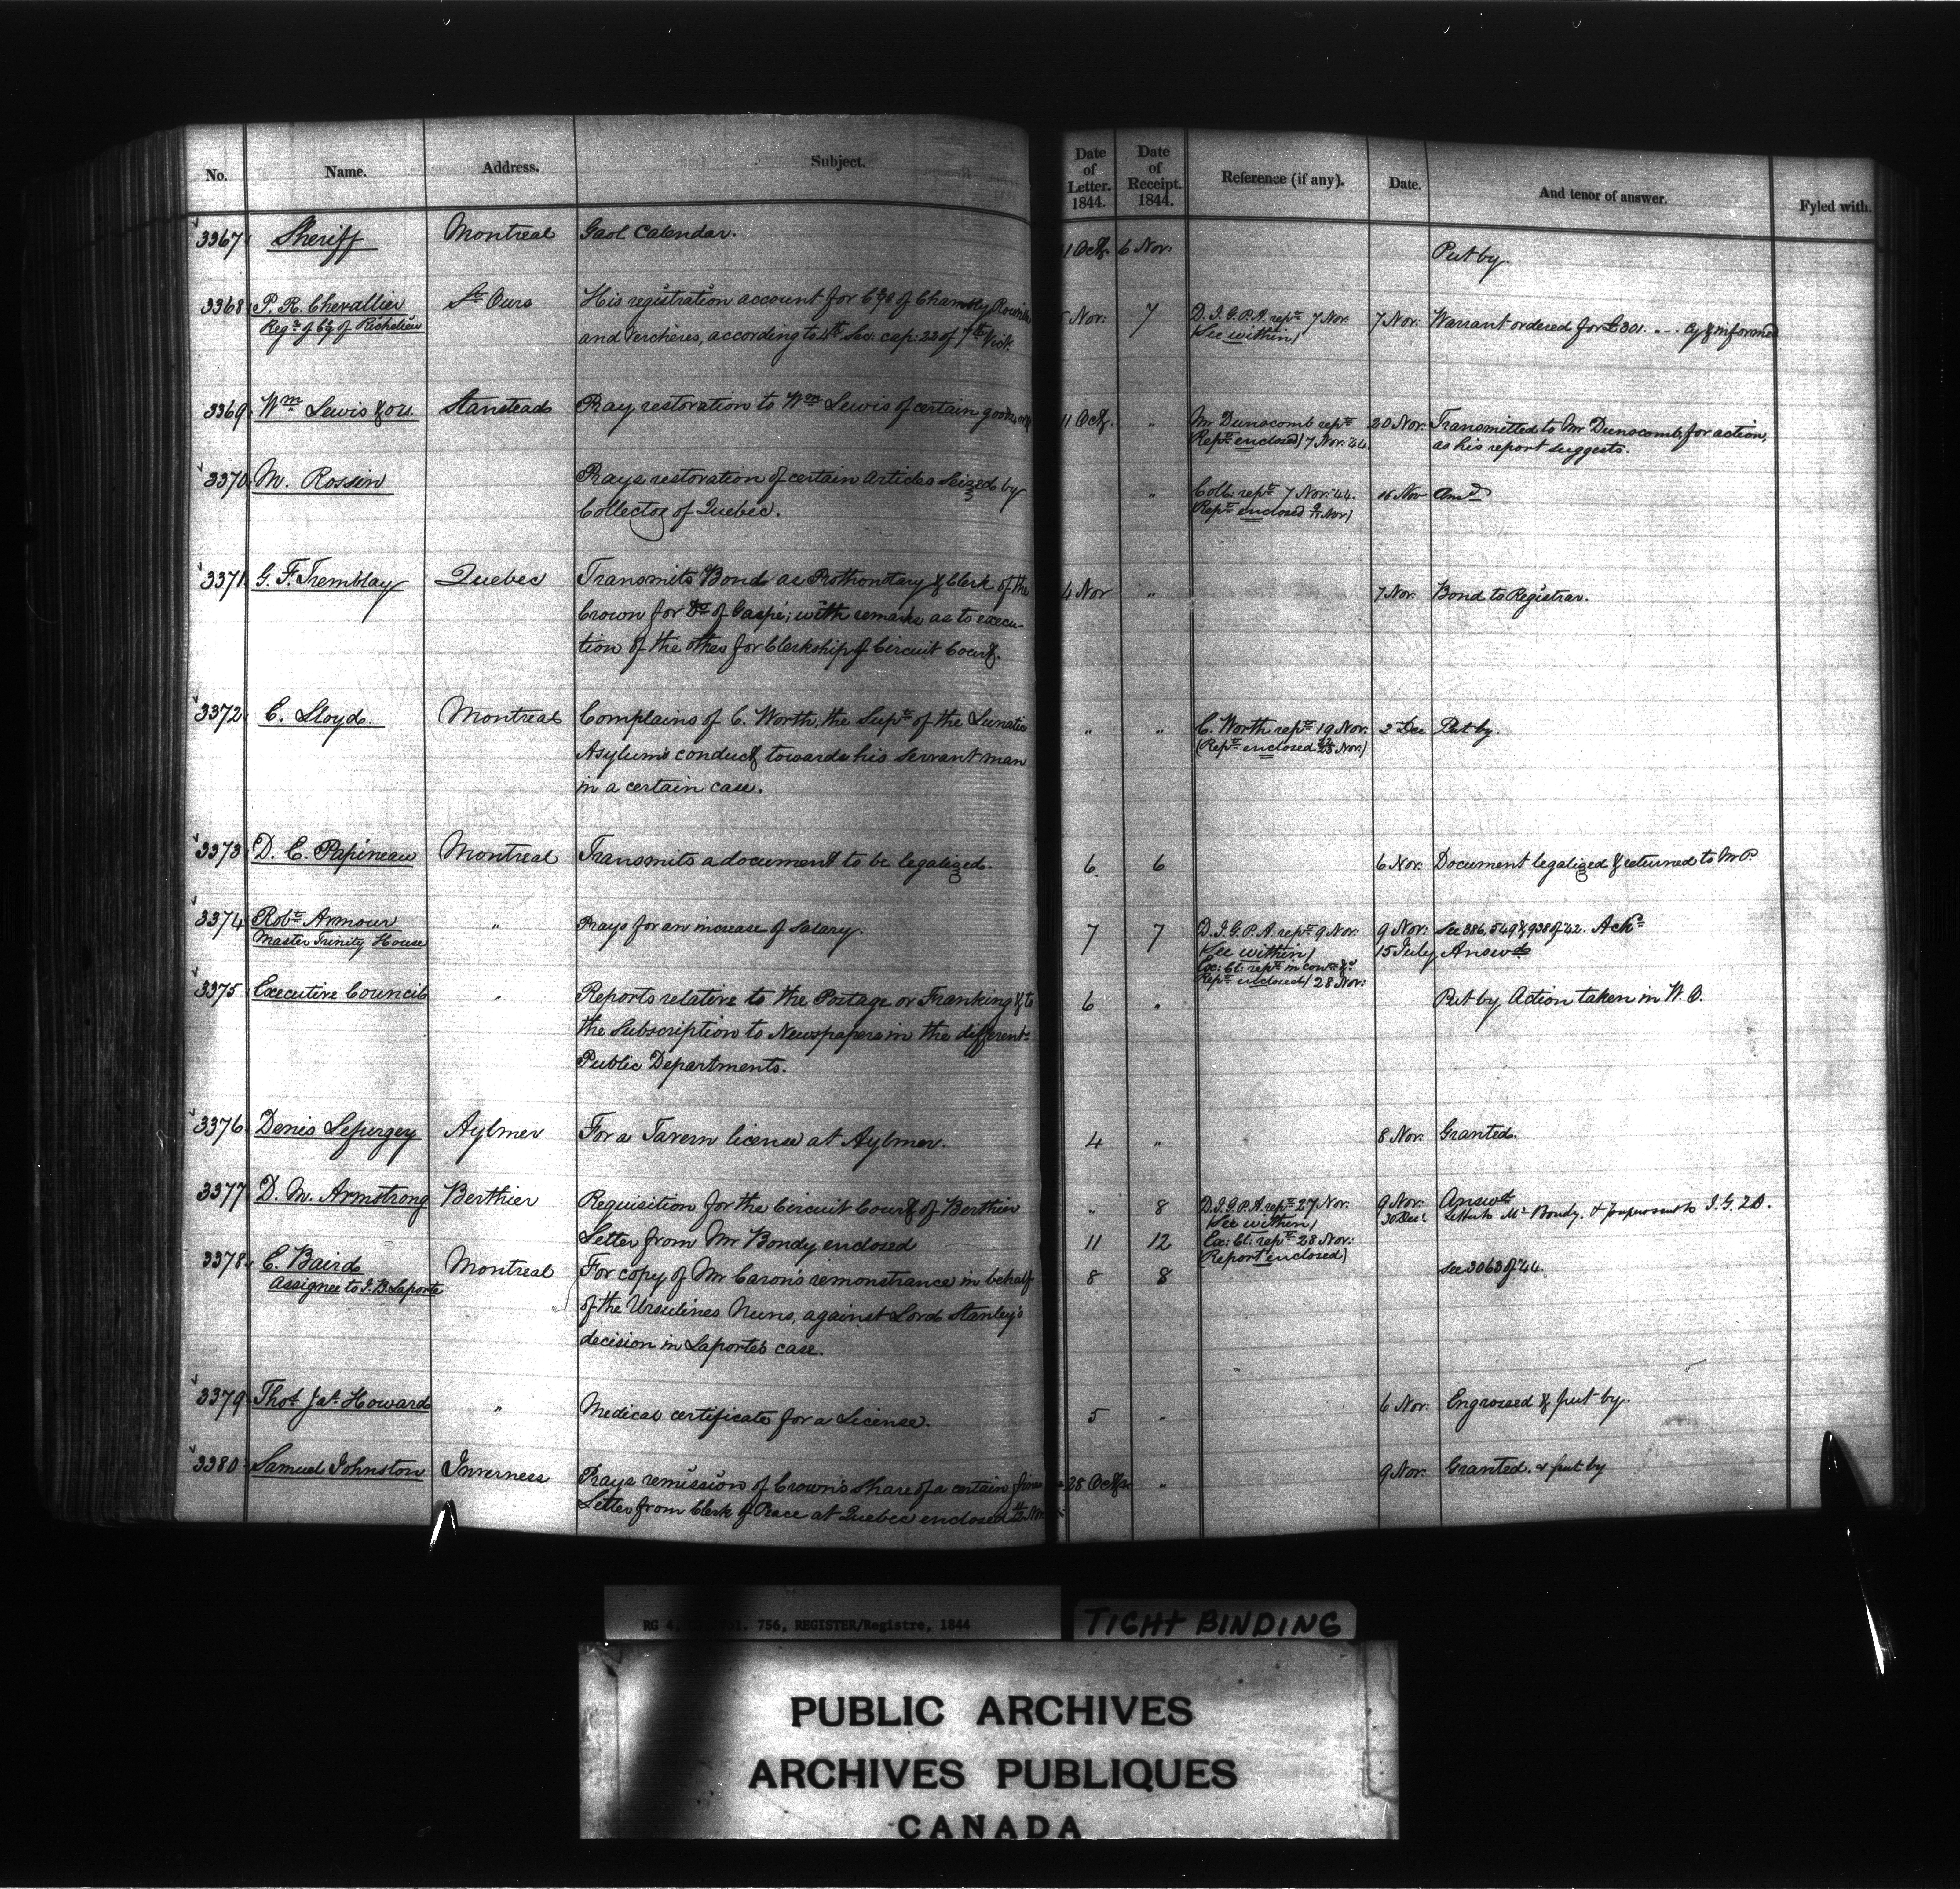 No. Name. Address. Subject. Date of Letter. 1844. Date of Receipt. 1844. Reference (if any). Date. And tenor of answer. Fyled with.
3367 Sheriff Montreal Gaol Calendar. 1 Octr. 6 Nov: Put by.
3368 P. R. Chevallier St Ours His registration account for Cys of Chambly, Rouville Nov: 7 D. I. G. P. A. rept 7 Nov: 7 Nov: Warrant ordered for £301. . . . Cy & informed
Regr of Cy of Richelieu and Verchères, according to 4th Sec. cap: 22 of 7th Vict. (See within)
3369 Wm Lewis & ors. Stanstead Pray restoration to Wm Lewis of certain goods 11 Octr. " Mr Dunscomb rept 20 Nov: Transmitted to Mr Dunscomb, for action,
Rept enclosed) 7 Nov: 44. as his report suggests.
3370 M. Rossin Prays restoration of certain articles seized by " Coll: rept 7 Nov: 44. 16 Nov Ansd
Collector of Quebec. (Rept enclosed Nov)
3371 G. F. Tremblay Quebec Transmits Bond as Prothonotary & Clerk of the 4 Nov " 7 Nov: Bond to Registrar.
Crown for Dt of Gaspé; with remarks as to execu-
tion of the other for Clerkship of Circuit Court.
3372 C. Lloyd. Montreal Complains of C. Worth, the Supt of the Lunatic " " C. Worth rept 19 Nov: 2 Dec Put by.
Asylum's conduct towards his servant man (Rept enclosed Nov:)
in a certain case.
3373 D. E. Papineau Montreal Transmits a document to be legalized. 6 6 6 Nov: Document legalized & returned to Mr P.
3374 Robt Armour " Prays for an increase of Salary. 7 7 D. I. G. P. A. rept 9 Nov: 9 Nov: See 386, 549 & 938 of '42. Ackd
Master Trinity House (See within) 15 July Answd
Ex: Cl: rept in
Rept enclosed) 28 Nov:
3375 Executive Council " Reports relative to the Postage or Franking & to 6 " Put by Action taken in W. C.
the Subscription to Newspapers in the different
Public Departments.
3376 Denis Lefurgey Aylmer For a Tavern license at Aylmer. 4 " 8 Nov: Granted.
3377 D. M. Armstrong Berthier Requisition for the Circuit Court of Berthier " 8 D. I. G. P. A. rept 27 Nov. 9 Nov: Answd
(See within) 30 Dec: Letter to Mr Bondy, & to I. G. P. A.
Letter from Mr Bondy enclosed 11 12 Ex: Cl: rept 28 Nov:
(Report enclosed)
3378 E. Baird Montreal For copy of Mr Caron's remonstrance in behalf 8 8 See 3063 of '44.
Assignee to J. B. Laporte of the Ursulines Nuns, against Lord Stanley's
decision in Laporte's case.
3379 Thos Jas Howard " Medical certificate for a License. 5 " 6 Nov: Engrossed & put by.
3380 Samuel Johnston Inverness Prays remission of Crown's share of a certain fine 28 Octr " 9 Nov: Granted. & put by
Letter from Clerk of Peace at Quebec enclosed Nov
RG 4, Vol. 756, REGISTER/Registre, 1844
TIGHT BINDING
PUBLIC ARCHIVES
ARCHIVES PUBLIQUES
CANADA